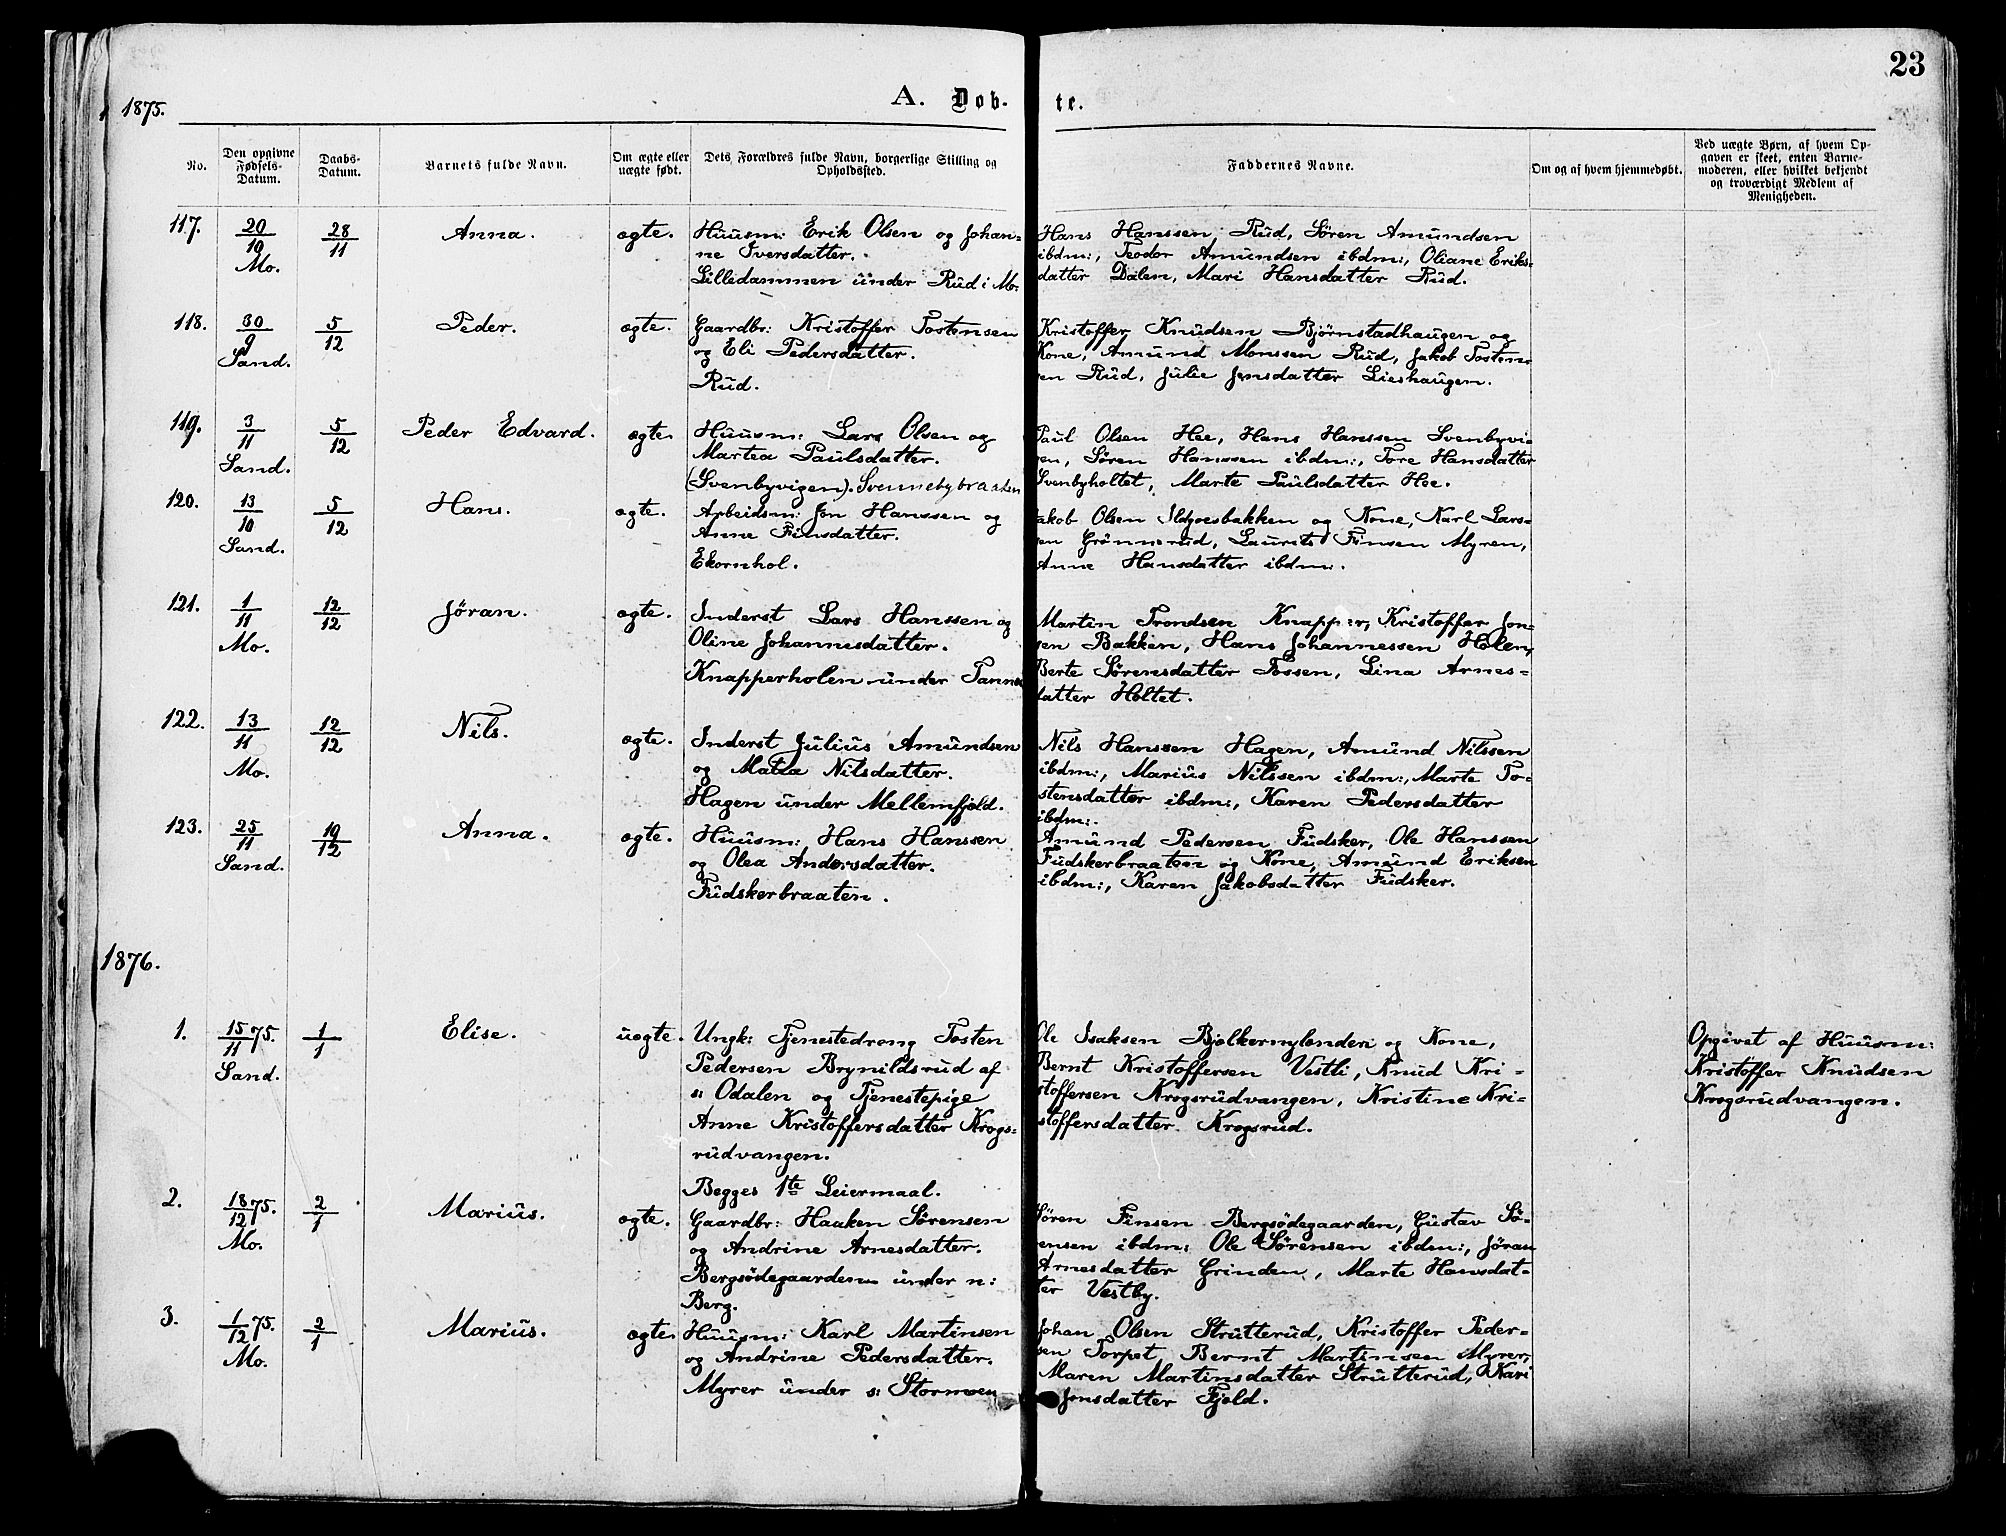 23
1875.
A. Døb-
te.
No.
Den opgivne Fødsels-Datum.
Daabs-Datum.
Barnets fulde Navn.
Om ægte eller uægte født.
Dets Forældres fulde Navn, borgerlige Stilling og Opholdssted.
Faddernes Navne.
Om og af hvem hjemmedøbt.
Ved uægte Børn, af hvem Op-
gaven er skeet, enten Barne-
moderen, eller hvilket bekjendt
og troværdigt Medlem af
Menigheden.
117.
20/10
Mo.
28/11
Anna.
ægte.
Huusm: Erik Olsen og Johan-
ne Iversdatter.
Lilledammen under Rud i Mo.
Hans Hanssen Rud, Sören Amundsen
ibdm:, Teodor Amundsen ibdm:, Oliane Eriks-
datter Dalen, Mari Hansdatter Rud.
118.
30/9
Sand.
5/12
Peder.
ægte.
Gaardbr: Kristoffer Tostensen
og Eli Pedersdatter.
Rud.
Kristoffer Knudsen Bjørnstadhaugen og
Kone, Amund Monssen Rud, Jakob Tosten-
sen Rud, Julie Jensdatter Lieshaugen.
119.
3/11
Sand.
5/12
Peder Edvard.
ægte.
Huusm: Lars Olsen og
Martea Paulsdatter.
(Svenbyvigen). Svennebybraaten
Paul Olsen Hee, Hans Hanssen Svenbyvi-
gen, Sören Hanssen ibdm:, Tore Hansdatter
Svenbyholtet, Marte Paulsdatter Hee.
120.
13/10
Sand.
5/12
Hans.
ægte.
Arbeidsm: Jon Hanssen og
Anne Finsdatter.
Ekornhol.
Jakob Olsen og Kone, Karl Lars-
sen Grönnerud, Laurits Finsen Myren,
Anne Hansdatter ibdm:.
121.
1/11
Mo.
12/12
Jøran.
ægte.
Inderst Lars Hanssen og
Oline Johannesdatter.
Knapperholen under
Martin Trondsen Knapper, Kristoffer Jon-
sen Bakken, Hans Johannessen Holen,
Berte Sörensdatter Fossen, Lina Arnes-
datter Holtet.
122.
13/11
Mo.
12/12
Nils.
ægte.
Inderst Julius Amundsen
og Matea Nilsdatter.
Hagen under Mellemfjeld.
Nils Hanssen Hagen, Amund Nilssen
ibdm:, Marius Nilssen ibdm:, Marte To-
stensdatter ibdm:, Karen Pedersdatter
ibdm:.
123.
25/11
Sand.
19/12
Anna.
ægte.
Huusm: Hans Hanssen
og Olea Andersdatter.
Fudskerbraaten.
Amund Pedersen Fudsker, Ole Hanssen
Fudskerbraaten og Kone, Amund Eriksen
ibdm:, Karen Jakobsdatter Fudsker.
1876.
1.
15/11 75.
Sand.
1/1
Elise.
uægte.
Ungk: Tjenestedreng Tosten
Pedersen Brynildsrud af
s: Odalen og Tjenestepige
Anne Kristoffersdatter Krogs-
rudvangen.
Begges 1te Leiermaal.
Ole Isaksen og Kone,
Bernt Kristoffersen Vestli, Knud Kri-
stoffersen Krogsrudvangen, Kristine Kri-
stoffersdatter Krogsrud.
Opgivet af Huusm:
Kristoffer Knudsen
Krogsrudvangen.
2.
18/12 75.
Mo.
2/1
Marius.
ægte.
Gaardbr: Haaken Sörensen
og Andrine Arnesdatter.
Bergsödegaarden under n:
Berg.
Sören Finsen Bergsödegaarden, Gustav Sö-
rensen ibdm: Ole Sörensen ibdm:, Jøran
Arnesdatter Grinden, Marte Hansdat-
ter Vestby.
3.
1/12 75.
Mo.
2/1
Marius.
ægte.
Huusm: Karl Martinsen
og Andrine Pedersdatter.
Myrer under s: Stormoen
Johan Olsen Strutterud, Kristoffer Peder-
sen Torpet Bernt Martinsen Myrer,
Maren Martinsdatter Strutterud, Kari
Jonsdatter Fjeld.